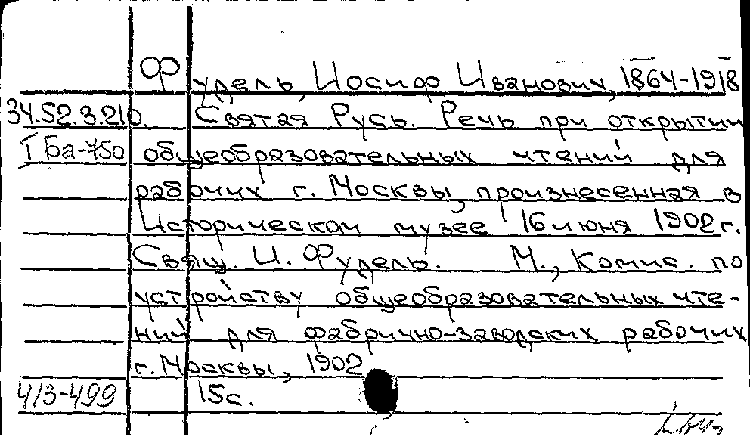 Фудель, Иосиф Иванович, 1864-1918
34.52.3.210. Святая Русь. Речь при открытии
общеобразовательных чтений для
рабочих г. Москвы, произнесенная в
Историческом музее 16 июня 1902 г.
Свящ. И. Фудель. М., Комис. по
устройству общеобразовательных чте-
ний для фабрично-заводских рабочих
г. Москвы, 1902
413-499 15с.